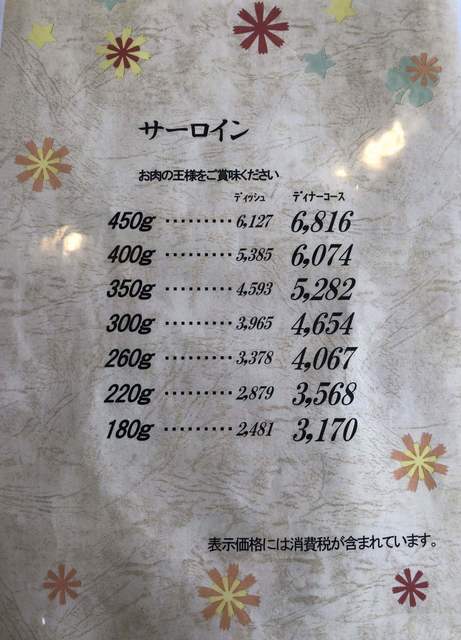 サーロイン
お肉の王様をご賞味ください
ディッシュ ディナーコース
450g ········· 6,127 6,816
400g ········· 5,385 6,074
350g ········· 4,593 5,282
300g ········· 3,965 4,654
260g ········· 3,378 4,067
220g ········· 2,879 3,568
180g ········· 2,481 3,170
表示価格には消費税が含まれています。